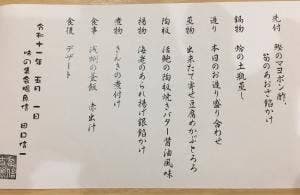 先付　鰹のマヨポン酢、
筍のあおさ餡かけ
鍋物　蛤の土瓶蒸し
造り　本日のお造り盛り合わせ
箸物　出来たて寄せ豆腐めかぶとろろ
陶板　活鮑の陶板焼きバター醤油風味
揚物　海老のあられ揚げ銀餡かけ
煮物　きんきの煮付け
食事　浅蜊の釜飯　赤出汁
食後　デザート
令和十一年　五月　一日
味の集会郷魚信　田口信一